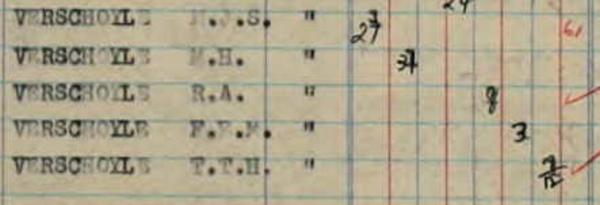 24
VERSCHOYLE H.J.S. " 27 61
VERSCHOYLE M.H. "
VERSCHOYLE R.A. " 8
VERSCHOYLE F.E.M. " 3
VERSCHOYLE T.T.H. " 7/12